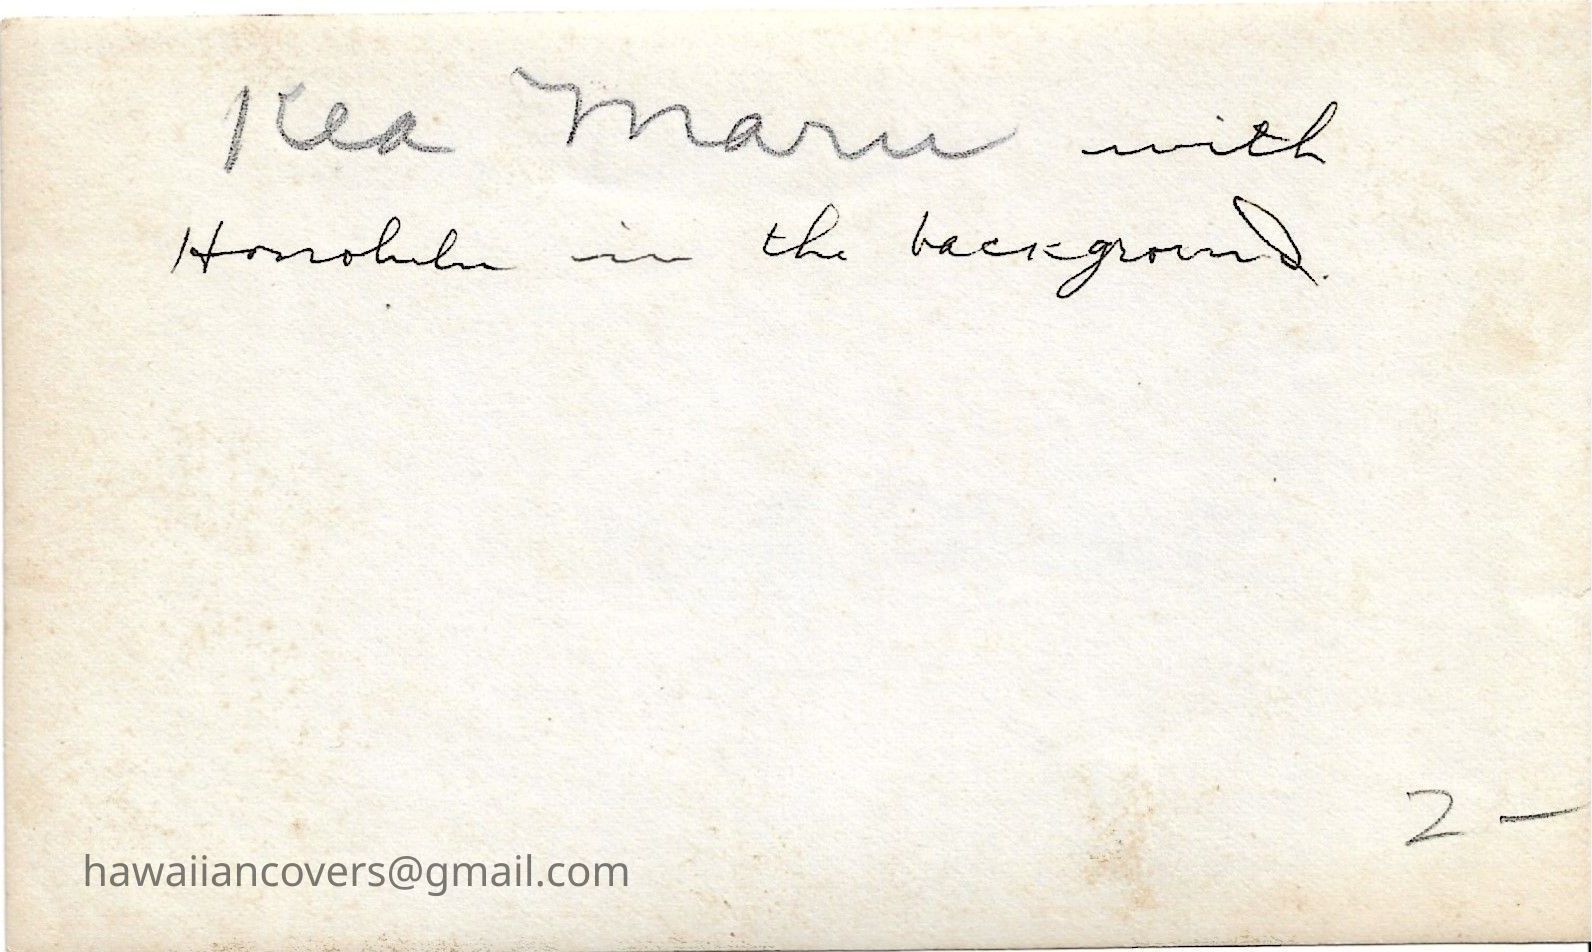 Kea Maru with
Honolulu in the background.
2 –
hawaiiancovers@gmail.com